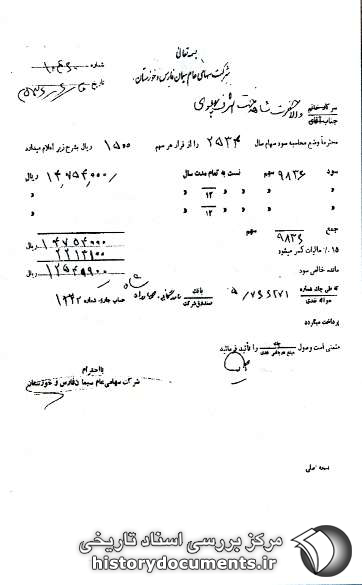 بسمه تعالی
شرکت سهامی عام سیمان فارس و خوزستان
شماره ۱۰۴۶۰
تاریخ
سرکار خانم
جناب آقای
والاحضرت شاهدخت اشرف پهلوی
محترماً وضع محاسبه سود سهام سال ۲۵۳۴ را از قرار هر سهم ۱۵۰۰ ریال بشرح زیر اعلام میدارد
سود ۹۸۳۶ سهم نسبت به تمام مدت سال ۱۴,۷۵۴,۰۰۰ ریال
" " " " ۱۲ " "
" " " " ۱۲ " "
جمع ۹۸۳۶ سهم ۱۴۷۵۴۰۰۰ ریال
۱۵٪ مالیات کسر میشود ۲۲۱۳۱۰۰
مانده خالص سود ۱۲۵۴۰۹۰۰ ریال
که طی چک شماره
حواله نقدی
بانک
صندوق شرکت
حساب جاری شماره ۱۳۴۲
پرداخت میگردد
متمنی است وصول چک
مبلغ نقدی را تأیید فرمائید
با احترام
شرکت سهامی عام سیمان فارس و خوزستان
نسخه اصلی
مرکز بررسی اسناد تاریخی
historydocuments.ir